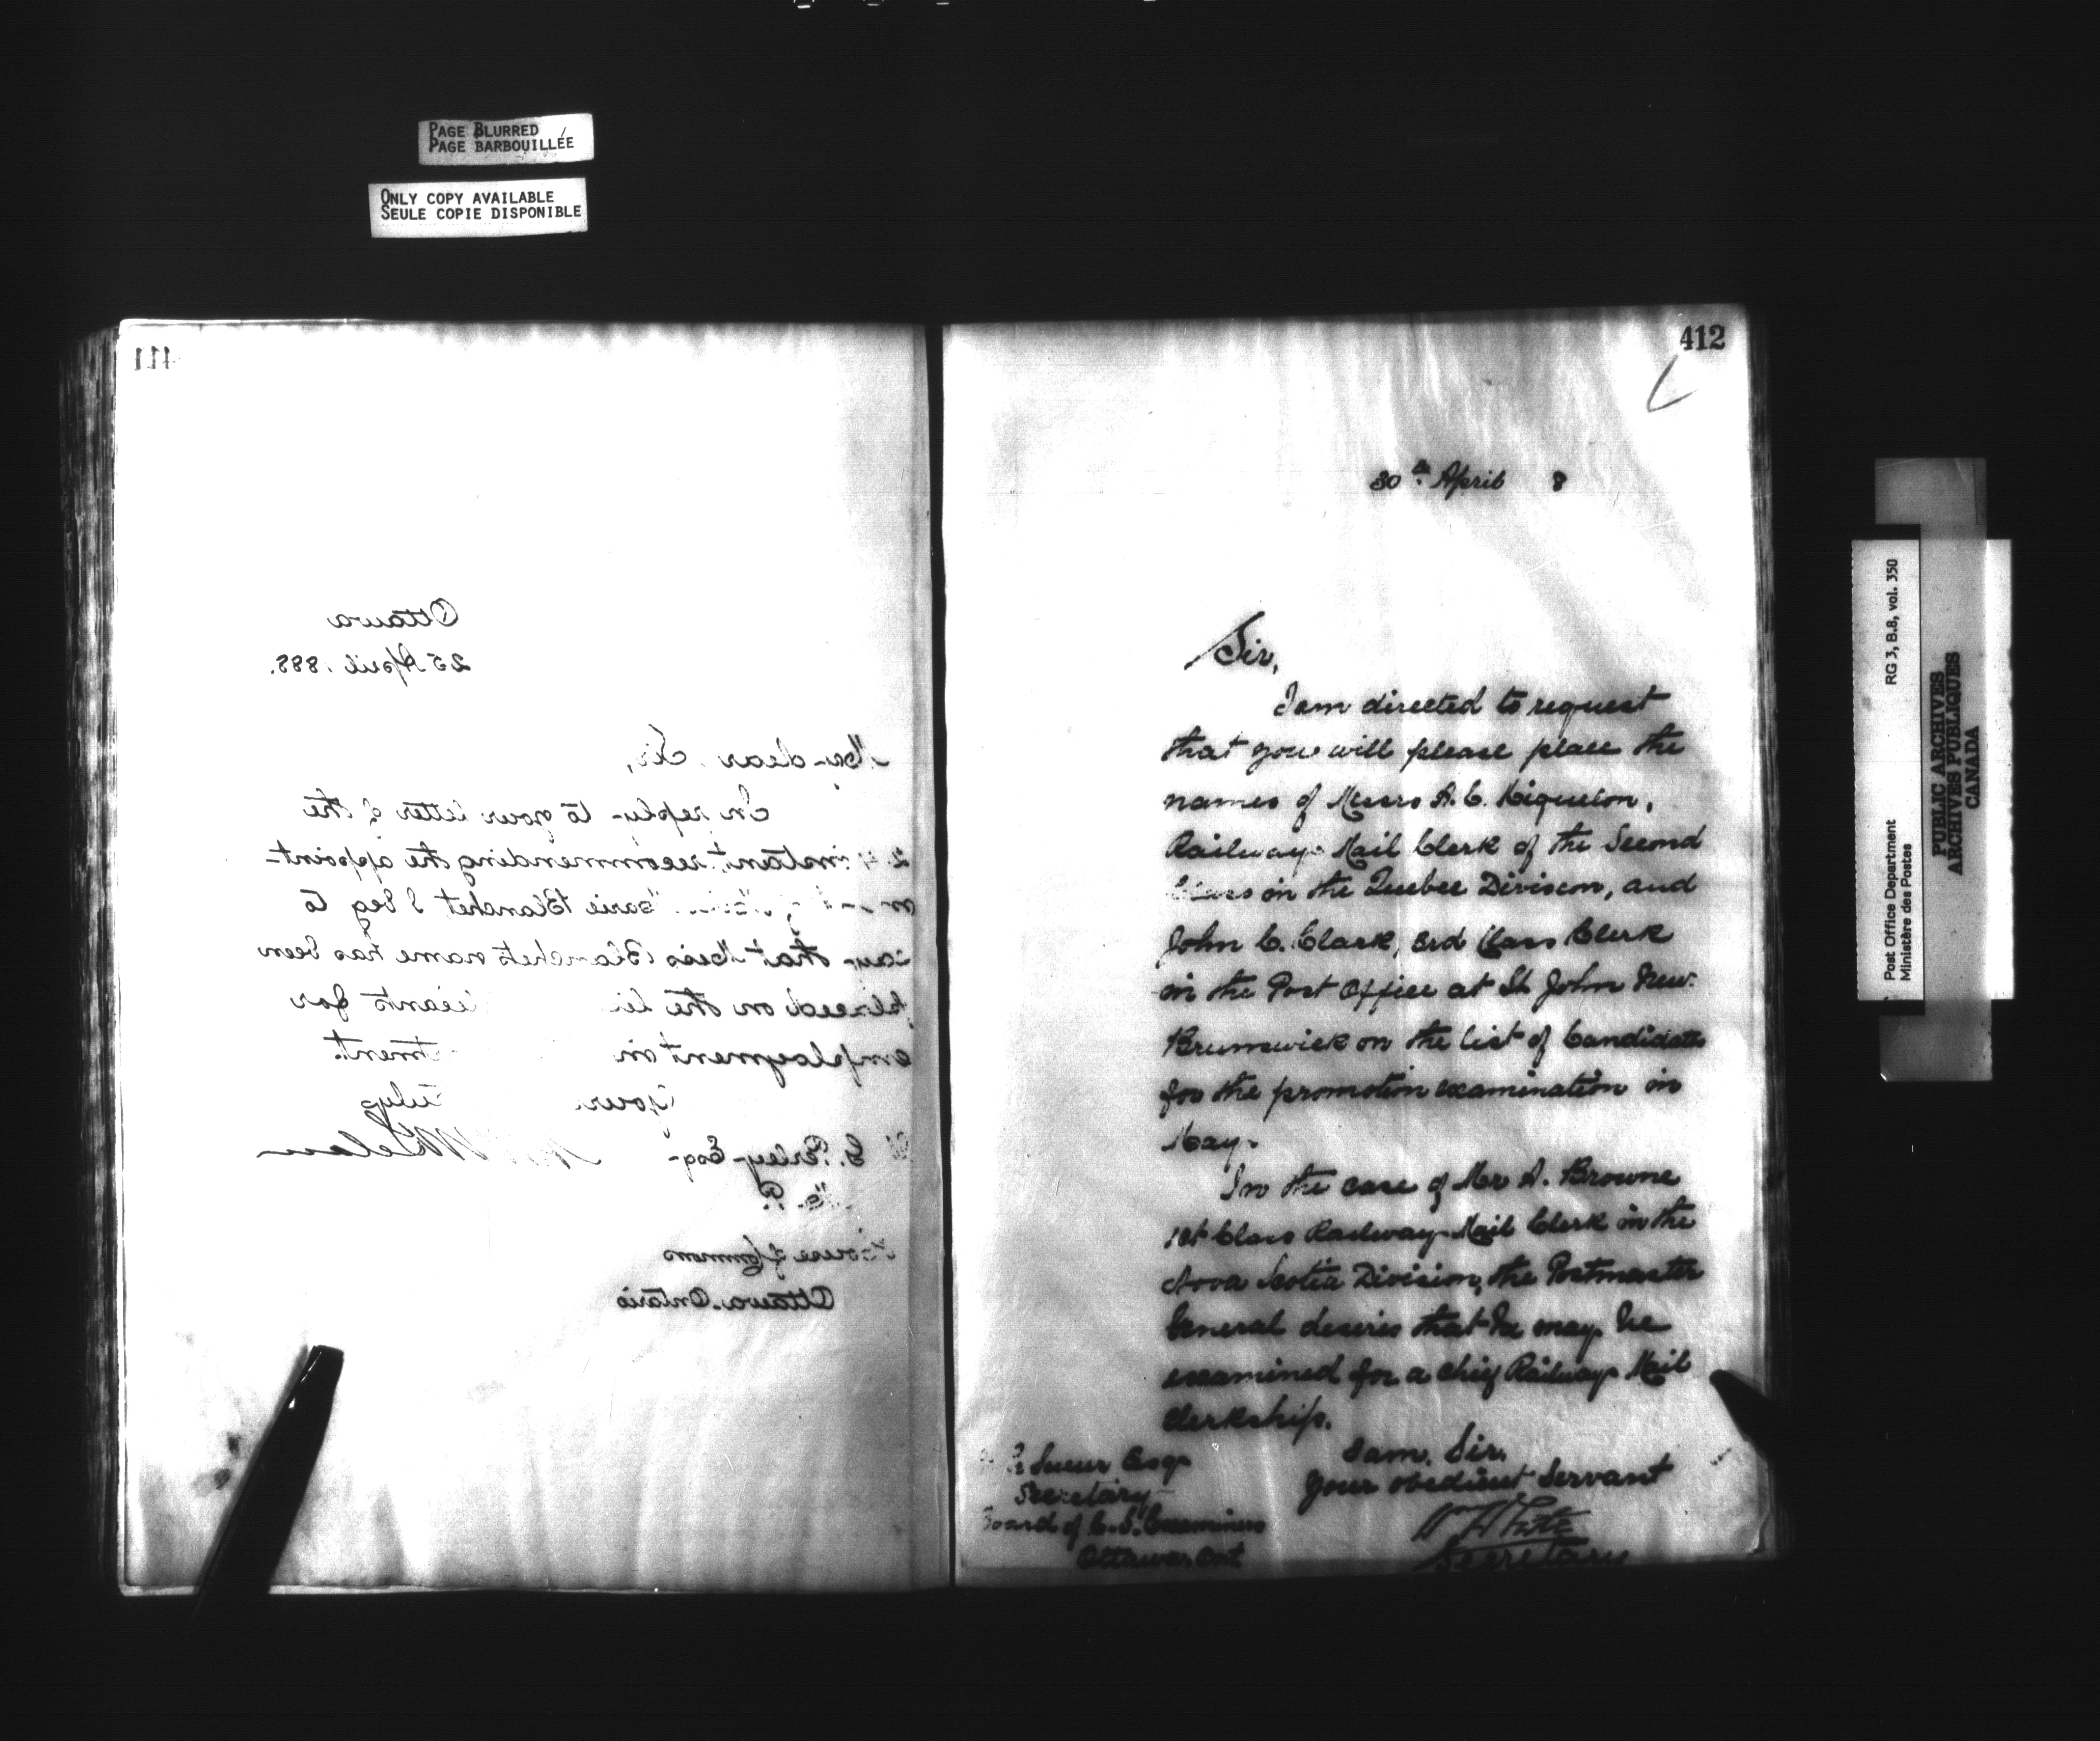 PAGE BLURRED
PAGE BARBOUILLÉE
ONLY COPY AVAILABLE
SEULE COPIE DISPONIBLE
411
Ottawa
25 April. 1888.
My dear Sir,
In reply to your letter of the
instant recommending the appoint-
Marie Blanchet I beg to
say that Miss Blanchet's name has been
placed on the for
employment in
Your
G. Perley Esq
M. P.
House of Commons
Ottawa. Ontario
412
30th April 8
Sir,
I am directed to request
that you will please place the
names of Messrs A. C.
Railway Mail Clerk of the Second
Class in the Quebec Division, and
John C. Clark, 3rd Class Clerk
in the Post Office at St John New
Brunswick on the list of Candidates
for the promotion examination in
May.
In the case of Mr A. Browne
1st Class Railway Mail Clerk in the
Nova Scotia Division, the Postmaster
General desires that he may be
examined for a chief Railway Mail
Clerkship.
I am, Sir,
Your obedient Servant
W White
Secretary
Le Sueur Esq
Secretary
Board of C. S. Examiners
Ottawa Ont
Post Office Department RG 3, B.8, vol. 350
Ministère des Postes
PUBLIC ARCHIVES
ARCHIVES PUBLIQUES
CANADA